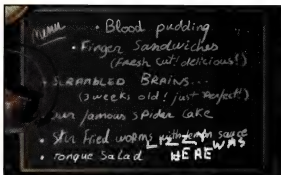 Menu
• Blood pudding
• Finger Sandwiches
(Fresh cut! delicious!)
• SCRAMBLED BRAINS...
(3 weeks old! just Perfect!)
• our famous spider cake
• Stir fried worms with lemon sauce
• Tongue Salad
LIZZY WAS
HERE